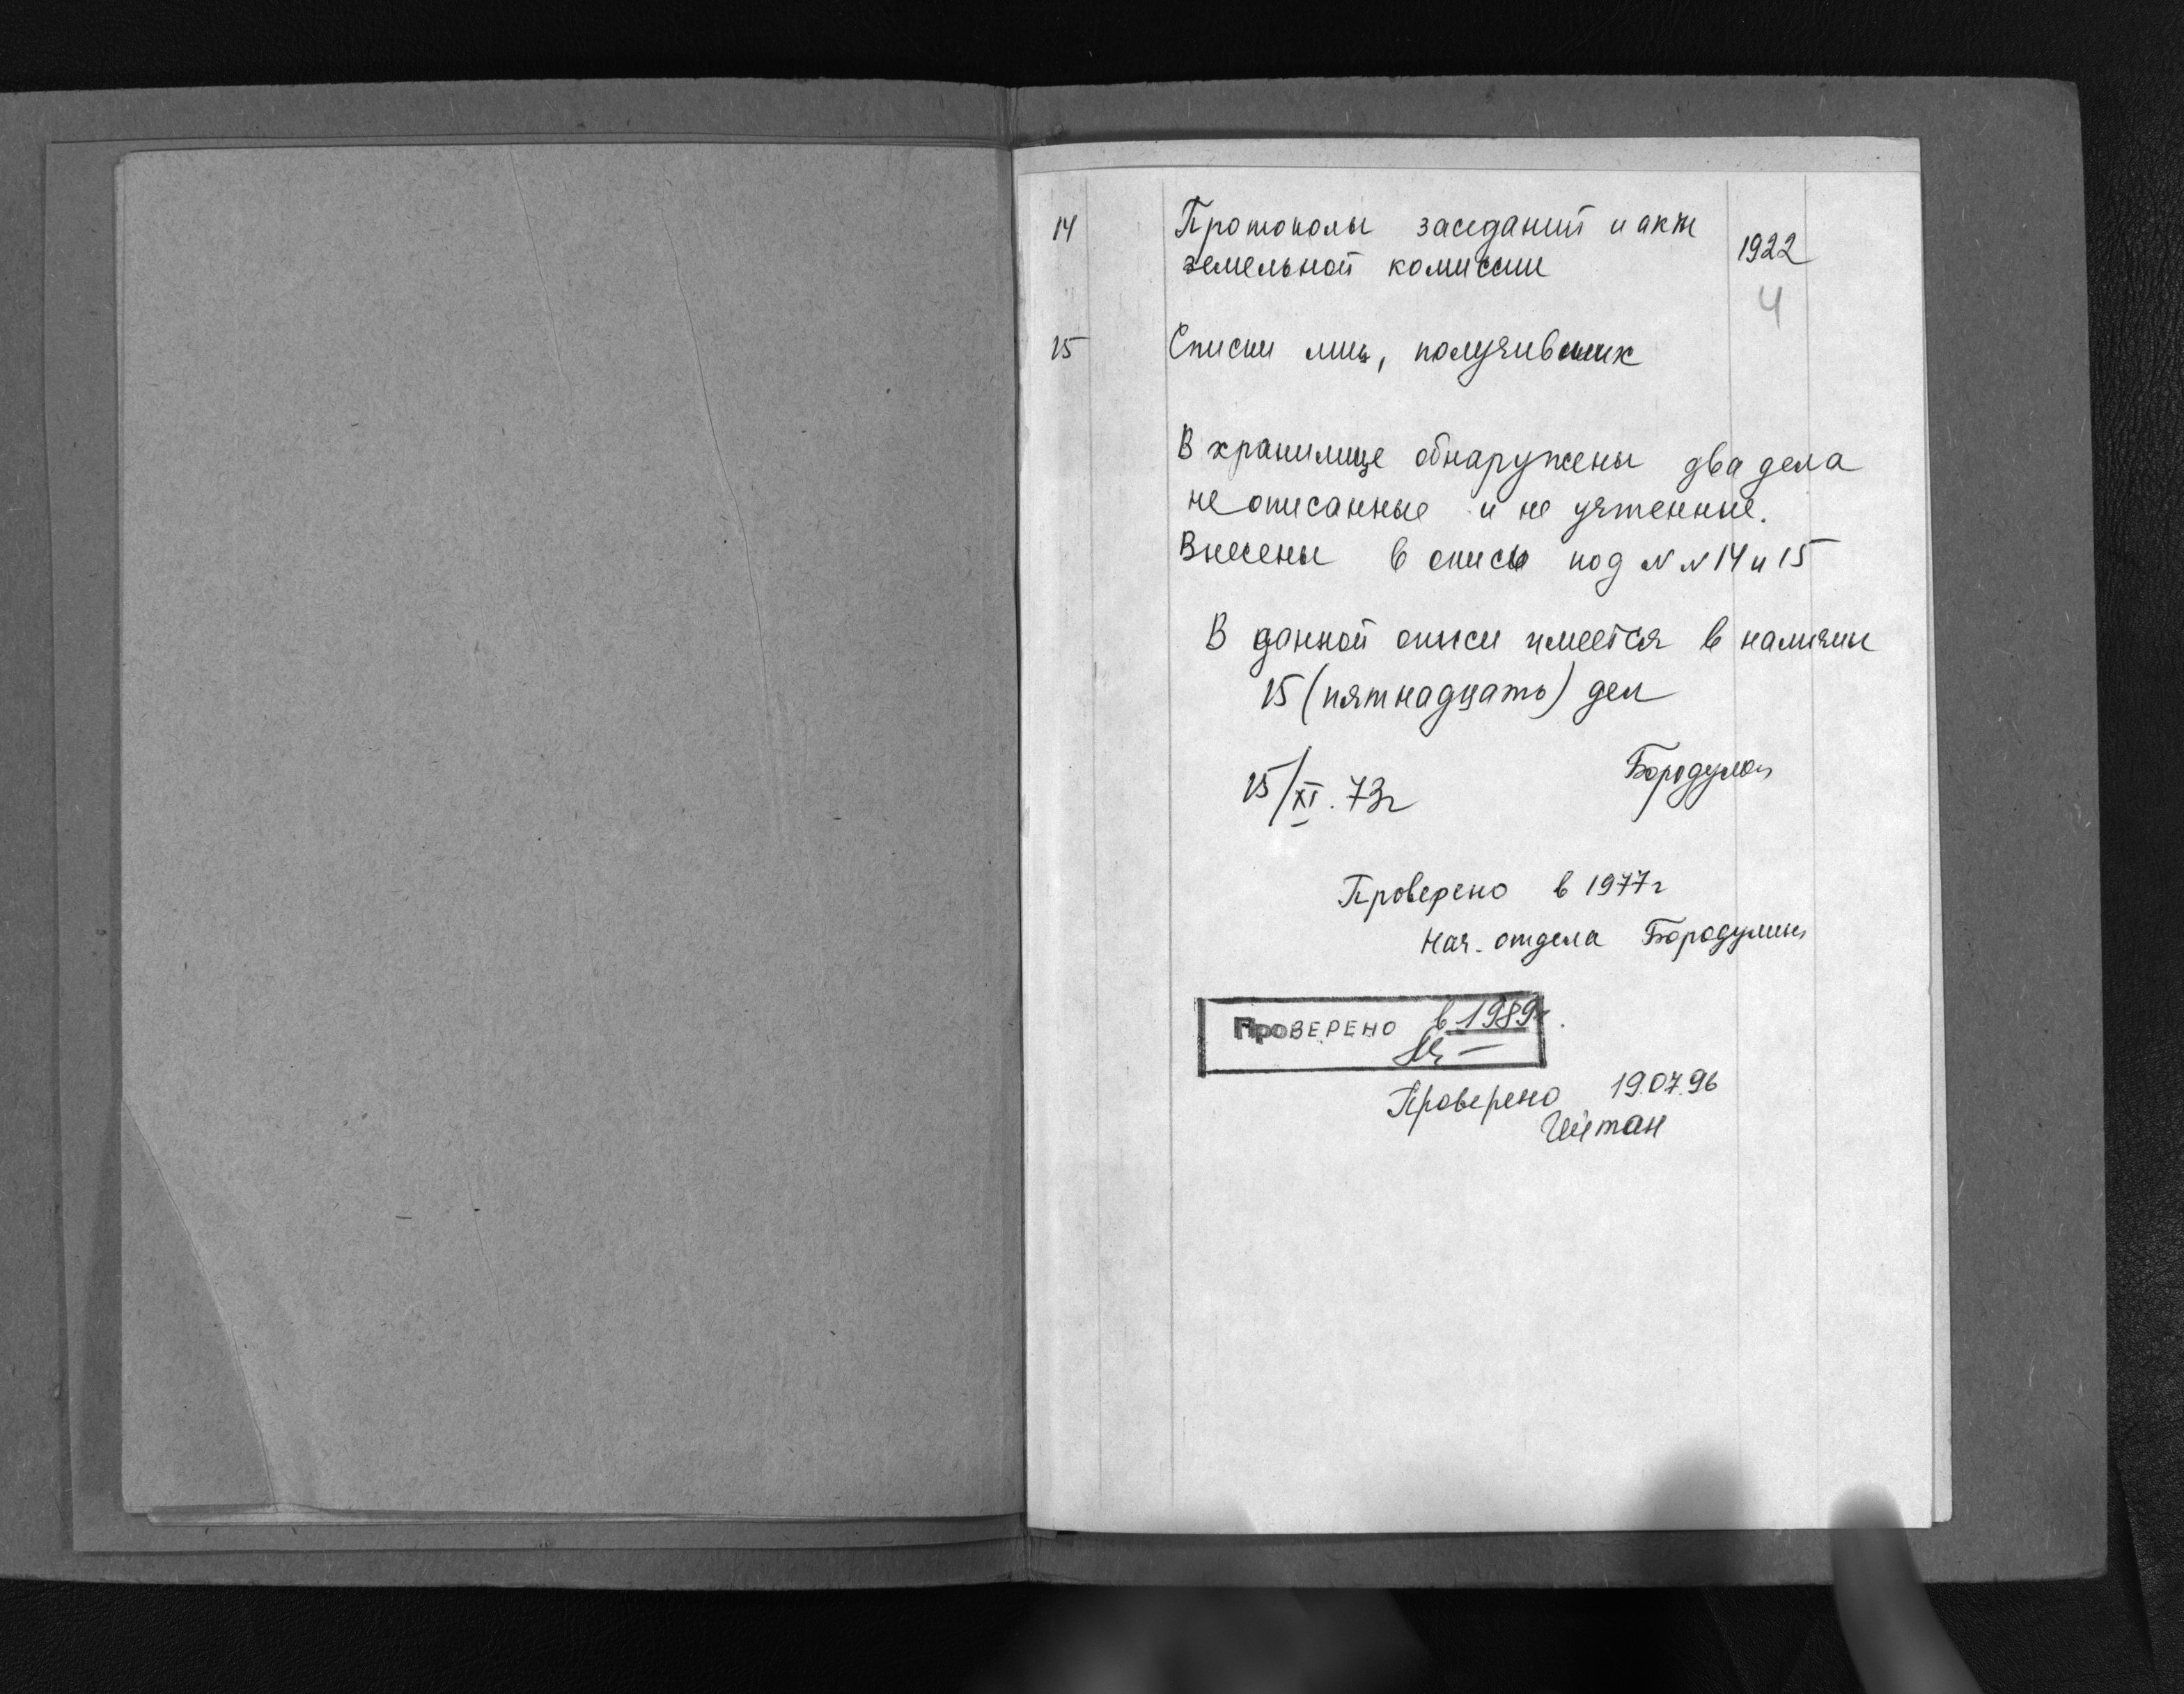 14 Протоколы заседаний и акты 1922
земельной комиссии
4
15 Списки лиц, получивших
В хранилище обнаружены два дела
не описанные и не учтенные.
Внесены в опись под N N 14 и 15
В данной описи имеется в наличии
15 (пятнадцать) дел
15/XI. 73г
Проверено в 1977г
Нач. отдела Бородулина
Проверено в 1989г.
Проверено 19.07.96